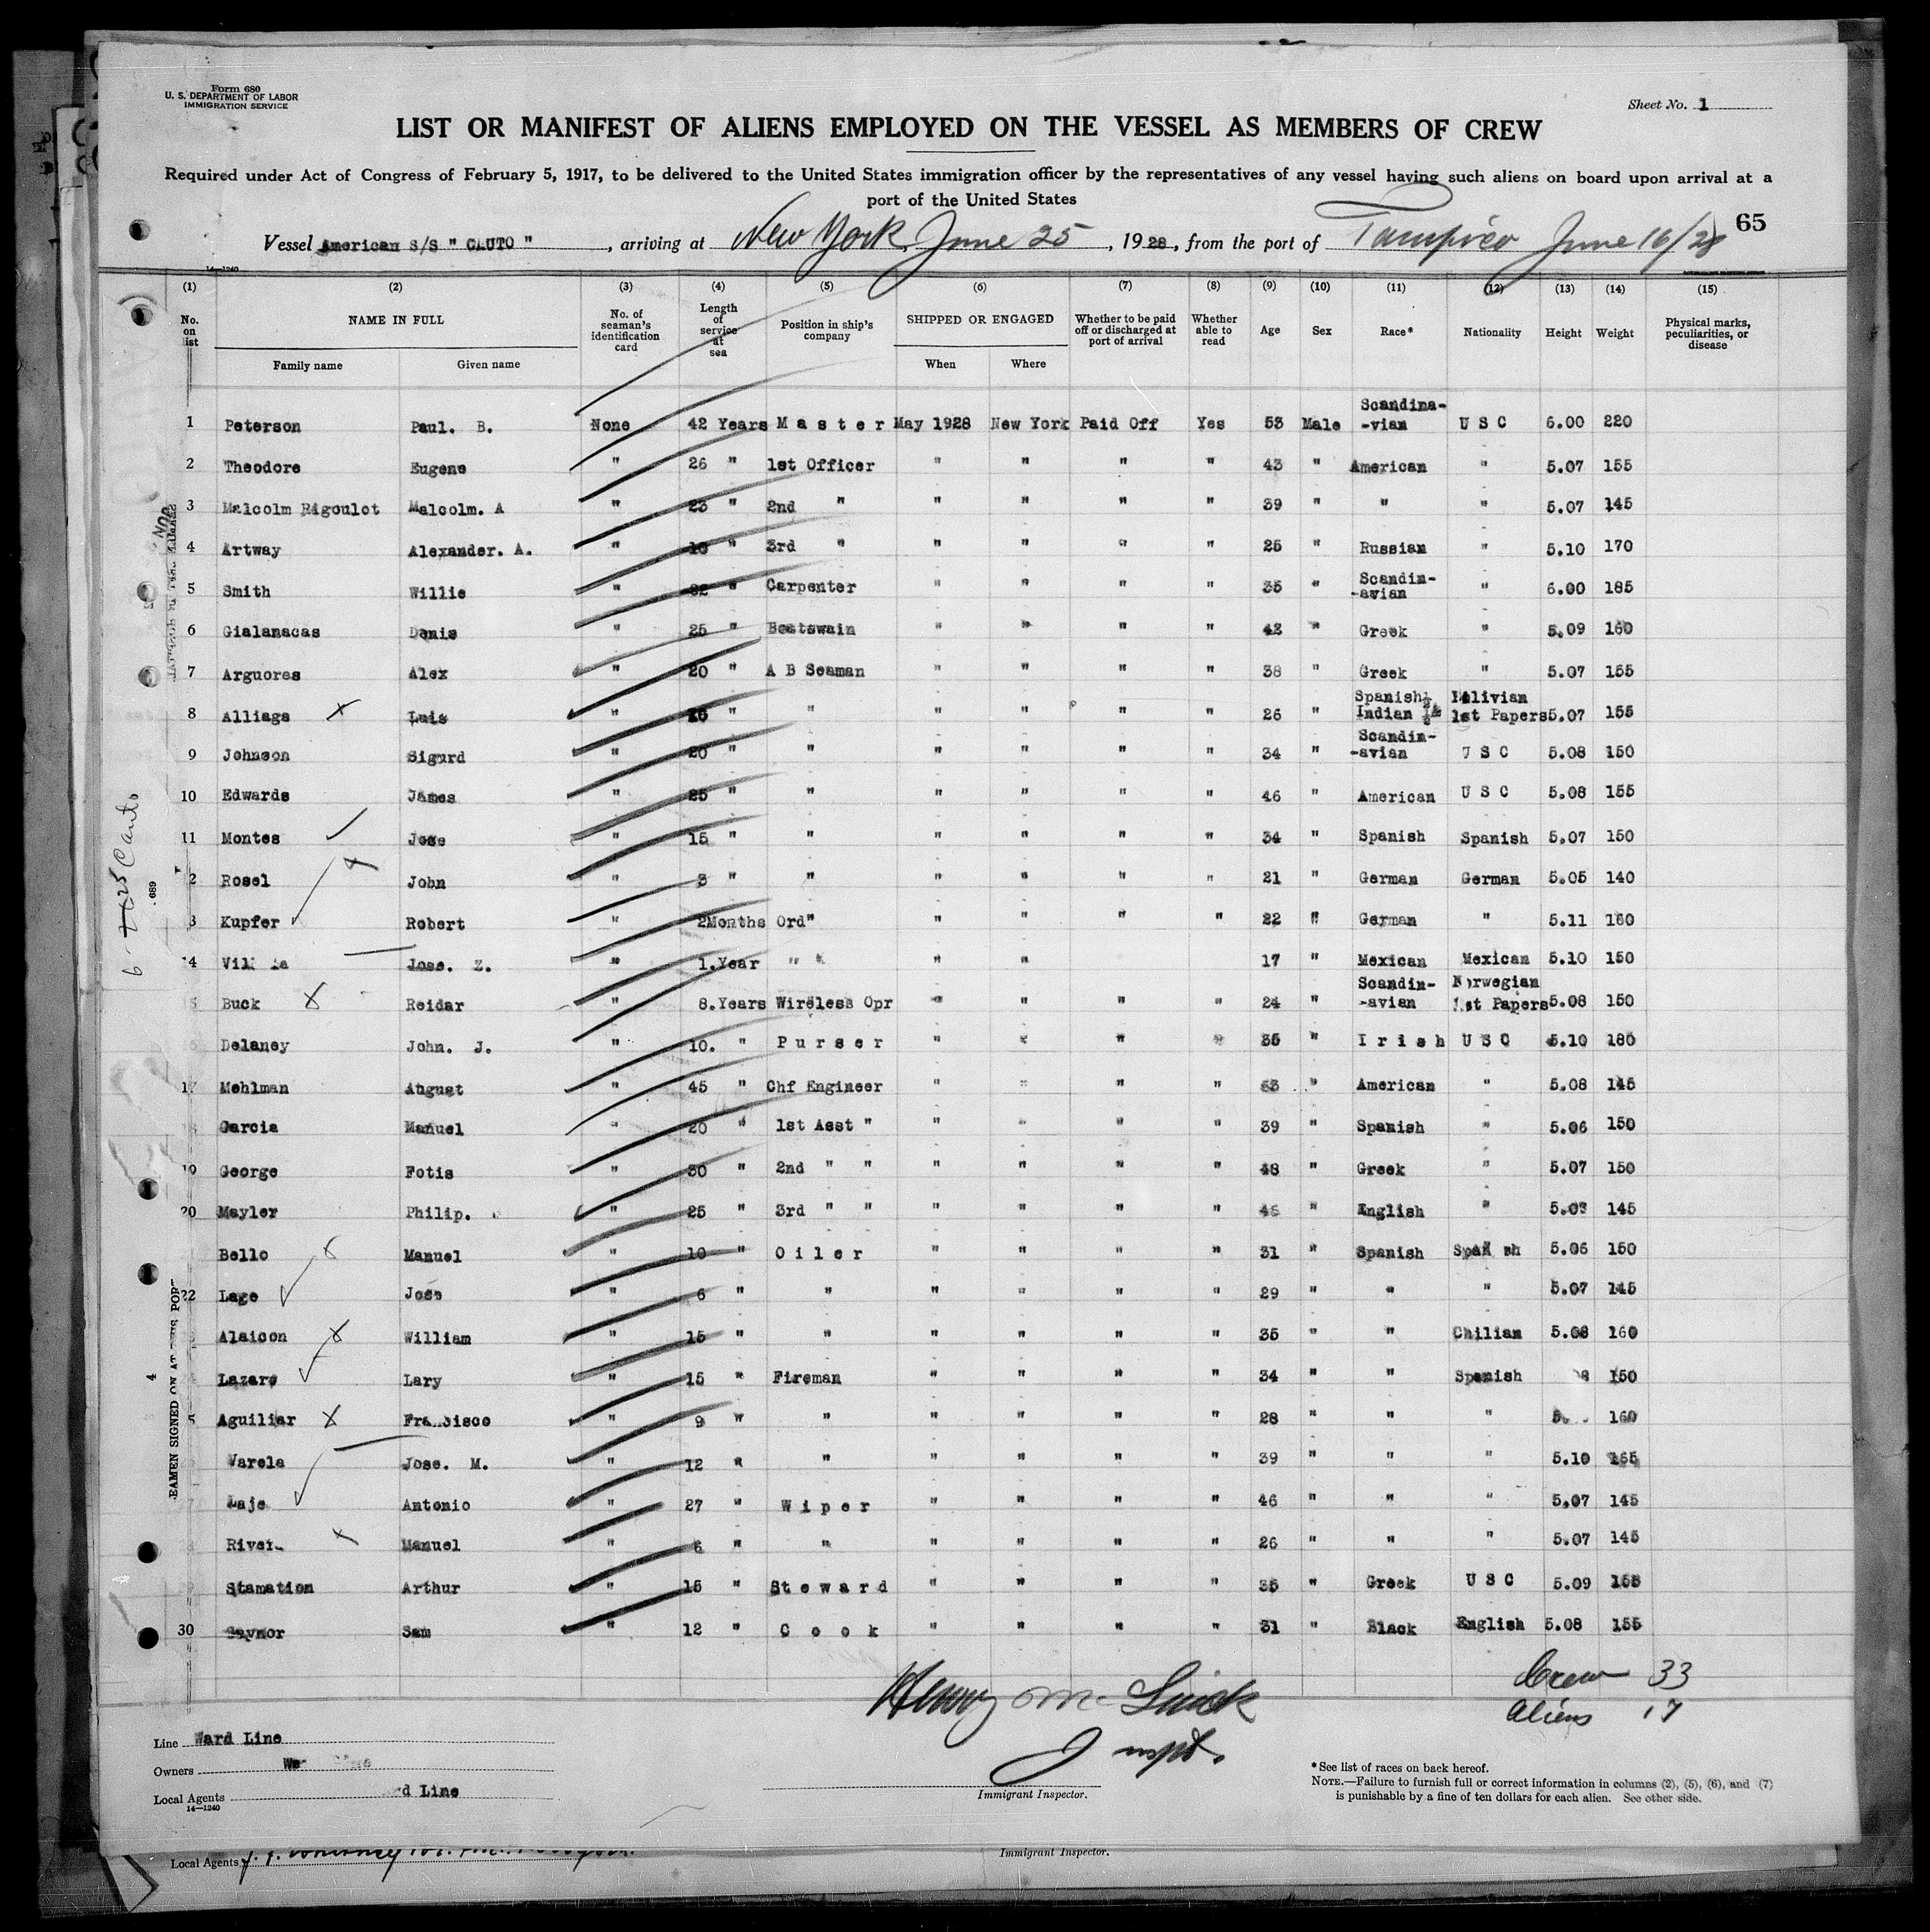 Form 680
U. S. DEPARTMENT OF LABOR
IMMIGRATION SERVICE
Sheet No. 1
LIST OR MANIFEST OF ALIENS EMPLOYED ON THE VESSEL AS MEMBERS OF CREW
Required under Act of Congress of February 5, 1917, to be delivered to the United States immigration officer by the representatives of any vessel having such aliens on board upon arrival at a
port of the United States
65
Vessel American S/S " CAUTO " , arriving at New York, June 25 , 1928 , from the port of Tampico June 16/28
14—1240
(1) (2) (3) (4) (5) (6) (7) (8) (9) (10) (11) (12) (13) (14) (15)
No. on list NAME IN FULL Family name Given name No. of seaman's identification card Length of service at sea Position in ship's company SHIPPED OR ENGAGED When Where Whether to be paid off or discharged at port of arrival Whether able to read Age Sex Race* Nationality Height Weight Physical marks, peculiarities, or disease
1 Peterson Paul. B. None 42 Years Master May 1928 New York Paid Off Yes 53 Male Scandina-vian U S C 6.00 220
2 Theodore Eugene " 26 " 1st Officer " " " " 43 " American " 5.07 155
3 Malcolm Rigoulot Malcolm. A " 23 " 2nd " " " " " 39 " " " 5.07 145
4 Artway Alexander. A. " " 3rd " " " " " 25 " Russian " 5.10 170
5 Smith Willie " " Carpenter " " " " 35 " Scandin-avian " 6.00 185
6 Gialanacas Denis " 25 " Boatswain " " " " 42 " Greek " 5.09 160
7 Arguores Alex " 20 " A B Seaman " " " " 38 " Greek " 5.07 155
8 Alliaga x Luis " " " " " " " 26 " Spanish ½ Indian ½ Bolivian 1st Papers 5.07 155
9 Johnson Sigurd " 20 " " " " " " 34 " Scandin-avian U S C 5.08 150
10 Edwards James " 25 " " " " " " 46 " American U S C 5.08 155
11 Montes Jose " 15 " " " " " " 34 " Spanish Spanish 5.07 150
2 Rosel John " 3 " " " " " " 21 " German German 5.05 140
3 Kupfer Robert " 2Months Ord" " " " " 22 " German " 5.11 160
14 Jose. Z. " 1.Year " " " " 17 " Mexican Mexican 5.10 150
5 Buck x Reidar " 8.Years Wireless Opr " " " " 24 " Scandin-avian Norwegian 1st Papers 5.08 150
Delaney John. J. " 10. " Purser " " " " 35 " Irish U S C 5.10 180
17 Mehlman August " 45 " Chf Engineer " " " " 63 " American " 5.08 145
Garcia Manuel " 20 " 1st Asst " " " " " 39 " Spanish " 5.06 150
19 George Fotis " 30 " 2nd " " " " " " 48 " Greek " 5.07 150
20 Mayler Philip. " 25 " 3rd " " " " " " 46 " English " 145
Bello x Manuel " 10 " Oiler " " " " 31 " Spanish Spanish 5.06 150
22 Lage Jose " 6 " " " " " " 29 " " " 5.07 145
Alaicon x William " 15 " " " " " " 35 " " Chilian 5.08 160
Lazare Lary " 15 " Fireman " " " " 34 " " Spanish 8 150
5 Aguiliar x Francisco " 9 " " " " " " 28 " " " 5. 160
Varela Jose. M. " 12 " " " " " " 39 " " " 5.10 165
Laje Antonio " 27 " Wiper " " " " 46 " " " 5.07 145
x Manuel " 6 " " " " " " 26 " " " 5.07 145
Stamation Arthur " 15 " Steward " " " " 35 " Greek U S C 5.09 155
30 Gaynor Sam " 12 " Cook " " " " 31 " Black English 5.08 155
6- 25 Cauto
689
4
Crew 33
Aliens 17
Henry Mc
Inspt.
Immigrant Inspector.
Line Ward Line
Owners
Local Agents rd Line
14—1240
* See list of races on back hereof.
NOTE.—Failure to furnish full or correct information in columns (2), (5), (6), and (7)
is punishable by a fine of ten dollars for each alien. See other side.
Local Agents
Immigrant Inspector.